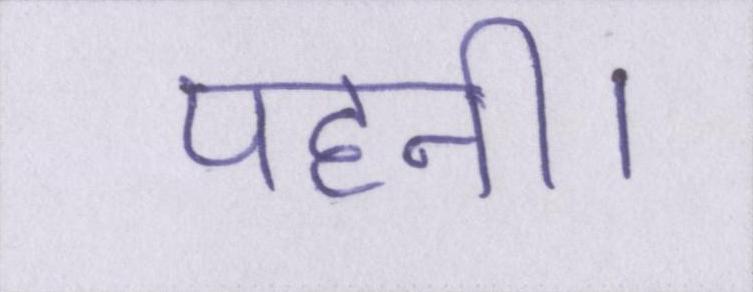 पहनी।